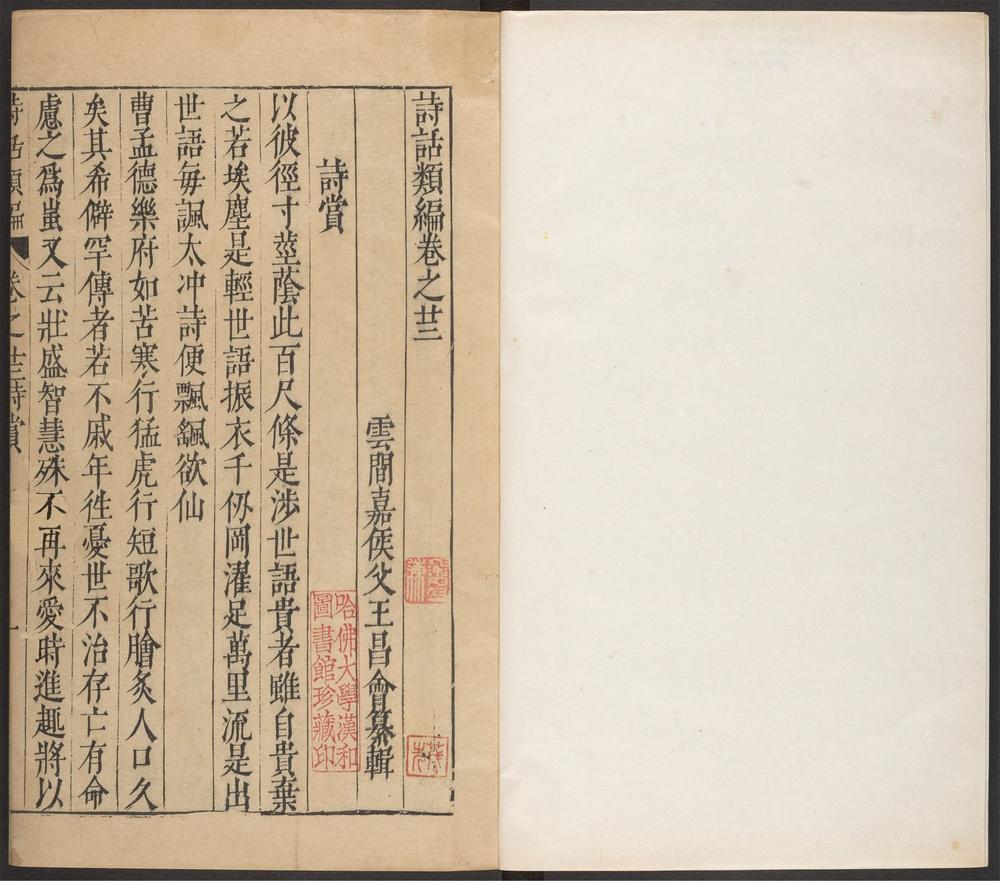 詩話類編卷之廿三
雲間嘉侯父王昌會纂輯
詩賞
以彼徑寸莖蔭此百尺條是涉世語貴者雖自貴棄
之若埃塵是輕世語振衣千仭岡濯足萬里流是出
世語每諷太冲詩便飄飖欲仙
曹孟德樂府如苦寒行猛虎行短歌行膾炙人口久
矣其希僻罕傳者若不戚年徃憂世不治存亡有命
慮之爲蚩又云壯盛智慧殊不再來愛時進趣將以
詩話類編 卷之廿三詩賞 一
哈佛大學漢和
圖書館珍藏印